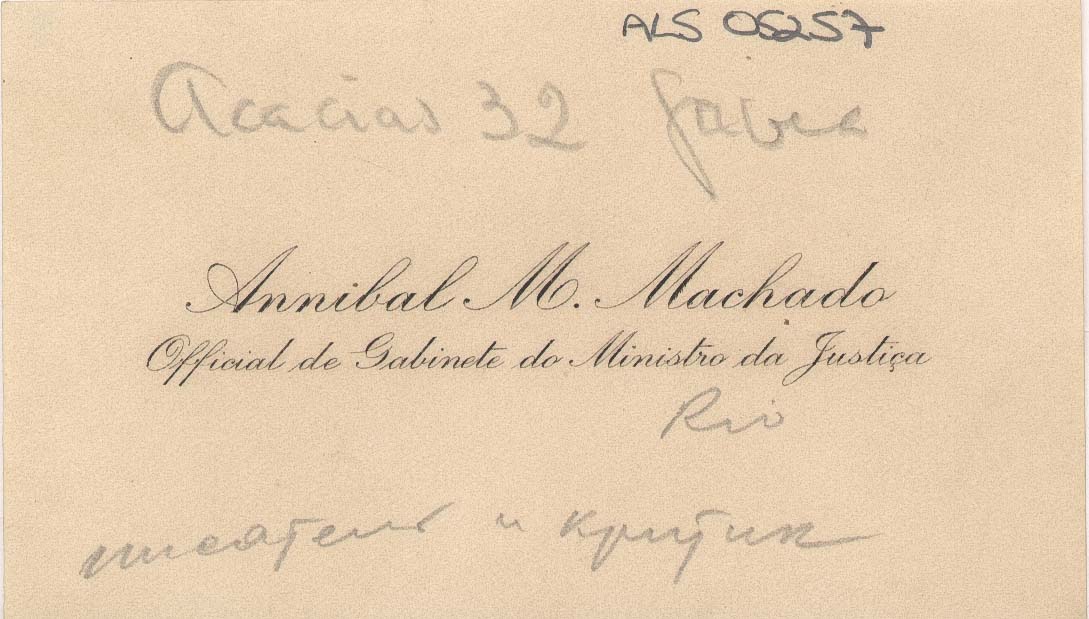 ALS 05257
Acacias 32 Gávea
Annibal M. Machado
Official de Gabinete do Ministro da Justiça
Rio
писатель и критик